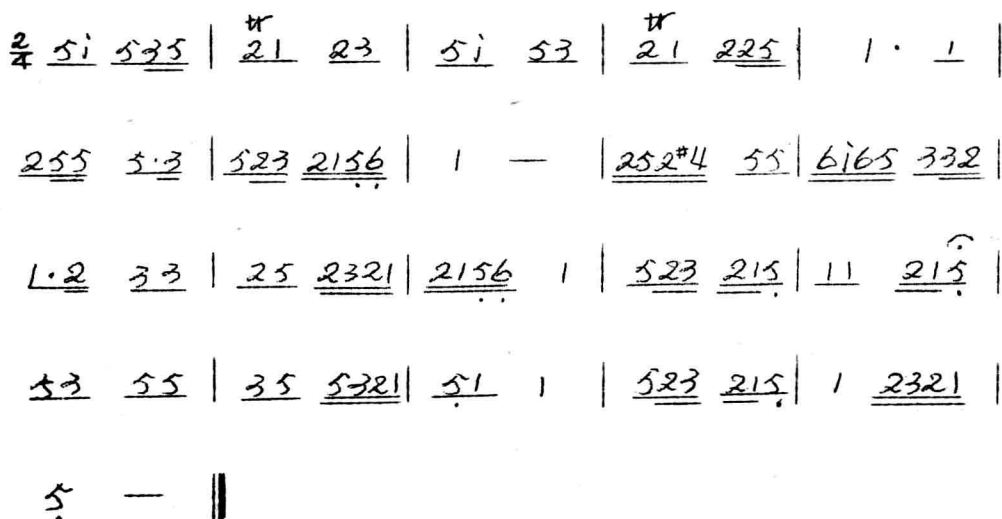 2/4 5i 535 | tr21 23 | 5i 53 | tr21 225 | 1 · 1 |
255 5·3 | 523 215̣6̣ | 1 — | 252#4 55 | 6i65 332 |
1·2 33 | 25 2321 | 215̣6̣ 1 | 523 215̣ | 11 215̣ |
53 55 | 35 5321 | 5̣1 1 | 523 215̣ | 1 2321 |
5̣ — ‖